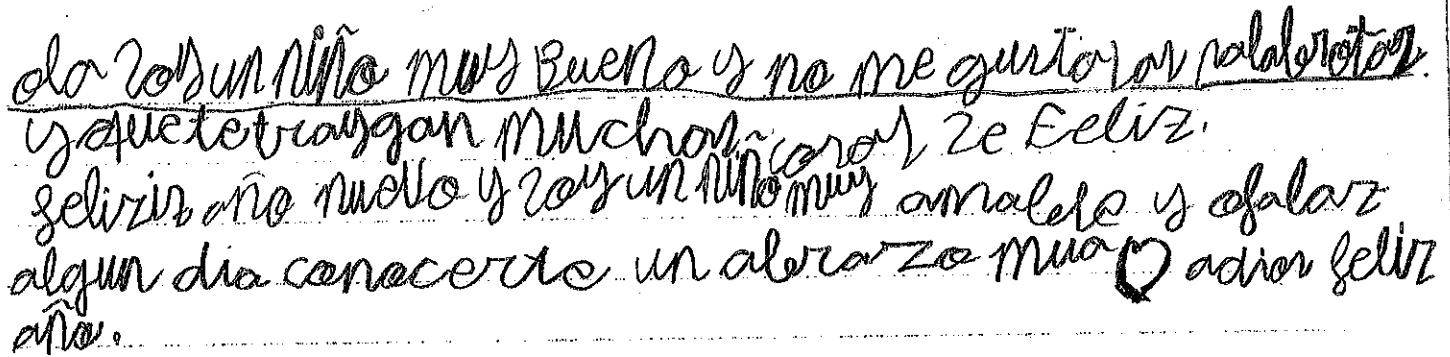 ola zoy un niño muy Bueno y no me gusta las palabrotas.
y que te traygan muchas cosas ze Feliz.
feliziz año nuevo y zoy un niño muy amable y ofalaz
algun dia conocerte un abrazo mua ♡ adios feliz
año.